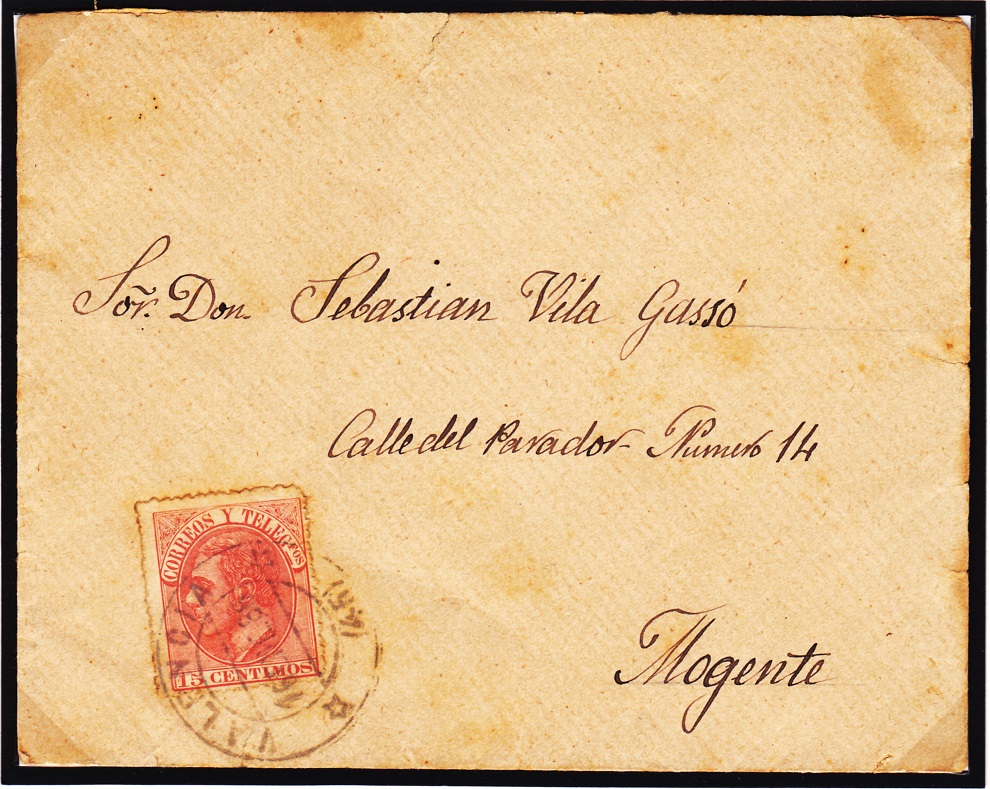 Soñr. Don. Sebastian Vila Gassó
Calle del Parador Numero 14
Mogente
CORREOS Y TELEGFOS
15 CENTIMOS
VALENCIA